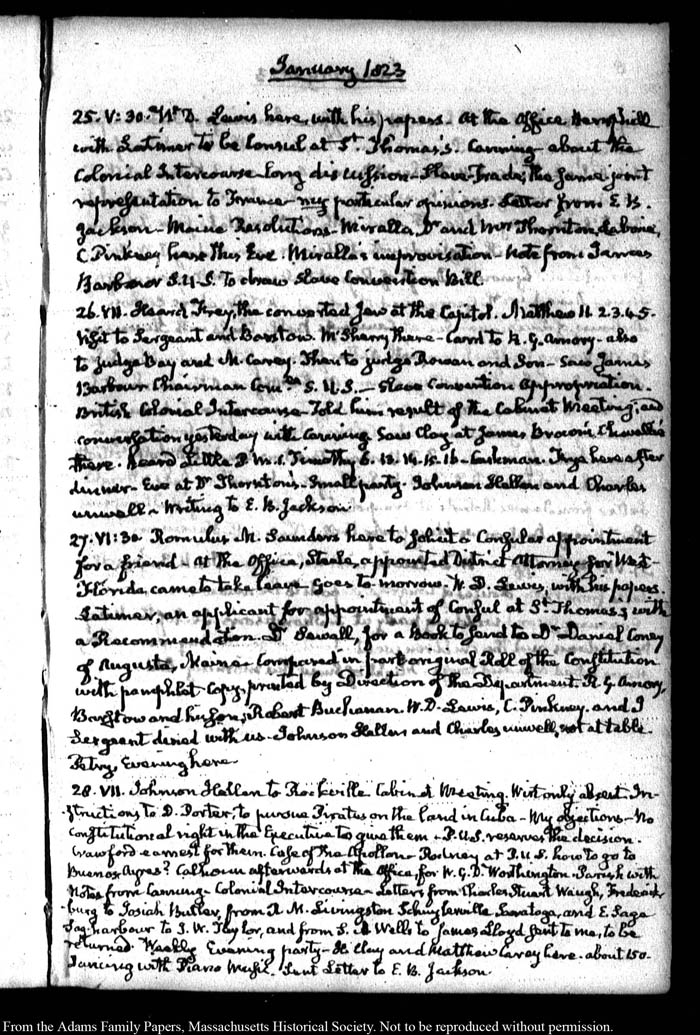 January 1823
25. V:30. W. D. Lewis here, with his papers. At the Office Hemphill
with Latimer to be Consul at St. Thomas's. Canning about the
Colonial Intercourse long discussion - Slave-Trade; the same joint
representation to France - my particular opinions. Letter from E. B.
Jackson - Maine Resolutions - Miralla, Dr and Mrs Thornton,
C. Pinkney here this Eve. Miralla's improvisation - Note from James
Barbour S.U.S. To draw Slave Convention Bill.
26. VII. Heard Frey, the converted Jew at the Capitol. Matthew 11. 2.3.4.5.
Visit to Sergeant and Barstow. McSherry there - Card to R. G. Amory - also
to Judge Day and M. Carey. Then to Judge Bowan and Son - Saw James
Barbour Chairman Com. S. U.S. - Slave Convention Appropriation.
British Colonial Intercourse - Told him result of the Cabinet Meeting; and
conversation yesterday with Canning. Saw Clay at James Brown's
there. Heard Little 1. Timothy 6. 13. 14. 15. 16 - Frye here after
dinner - Eve at Dr Thornton's. Small party. Johnson Hellen and Charles
unwell - Writing to E. B. Jackson.
27. VI:30 Romulus M. Saunders here to solicit a Consular appointment
for a friend - At the Office, Steele, appointed District Attorney for West-
Florida came to take leave goes to-morrow. W. D. Lewis, with his papers.
Latimer, an applicant for appointment of Consul at St. Thomas's with
a Recommendation. Dr Sewall, for a Book to send to Dr Daniel Coney
of Augusta, Maine - Compared in part original Roll of the Constitution
with pamphlet Copy printed by Direction of the Department. R. G. Amory,
Barstow and his Son, Robert Buchanan, W. D. Lewis, C. Pinkney, and J
Sergeant dined with us. Johnson Hellen and Charles unwell, not at table.
Petry, Evening here
28. VII. Johnson Hellen to Rockville Cabinet Meeting. Wirt only absent. In-
structions to D. Porter, to pursue Pirates on the land in Cuba - My objections - No
constitutional right in the Executive to give them - P.U.S. reserves the decision.
Crawford earnest for them. Case of the Apollon - Rodney at P.U.S. how to go to
Buenos Ayres? Calhoun afterwards at the Office, for W. G. D. Worthington Parish with
Notes from Canning - Colonial Intercourse - Letters from Charles Stuart Waugh, Frederick-
burg to Josiah Butler, from R. M. Livingston Schuylerville Saratoga, and E. Sage
Sag-harbour to J. W. Taylor, and from S. A Wells to James Lloyd sent to me, to be
returned. Weekly Evening party - H. Clay and Matthew Carey here. about 150.
Dancing with Piano Music. Sent Letter to E. B. Jackson.
From the Adams Family Papers, Massachusetts Historical Society. Not to be reproduced without permission.